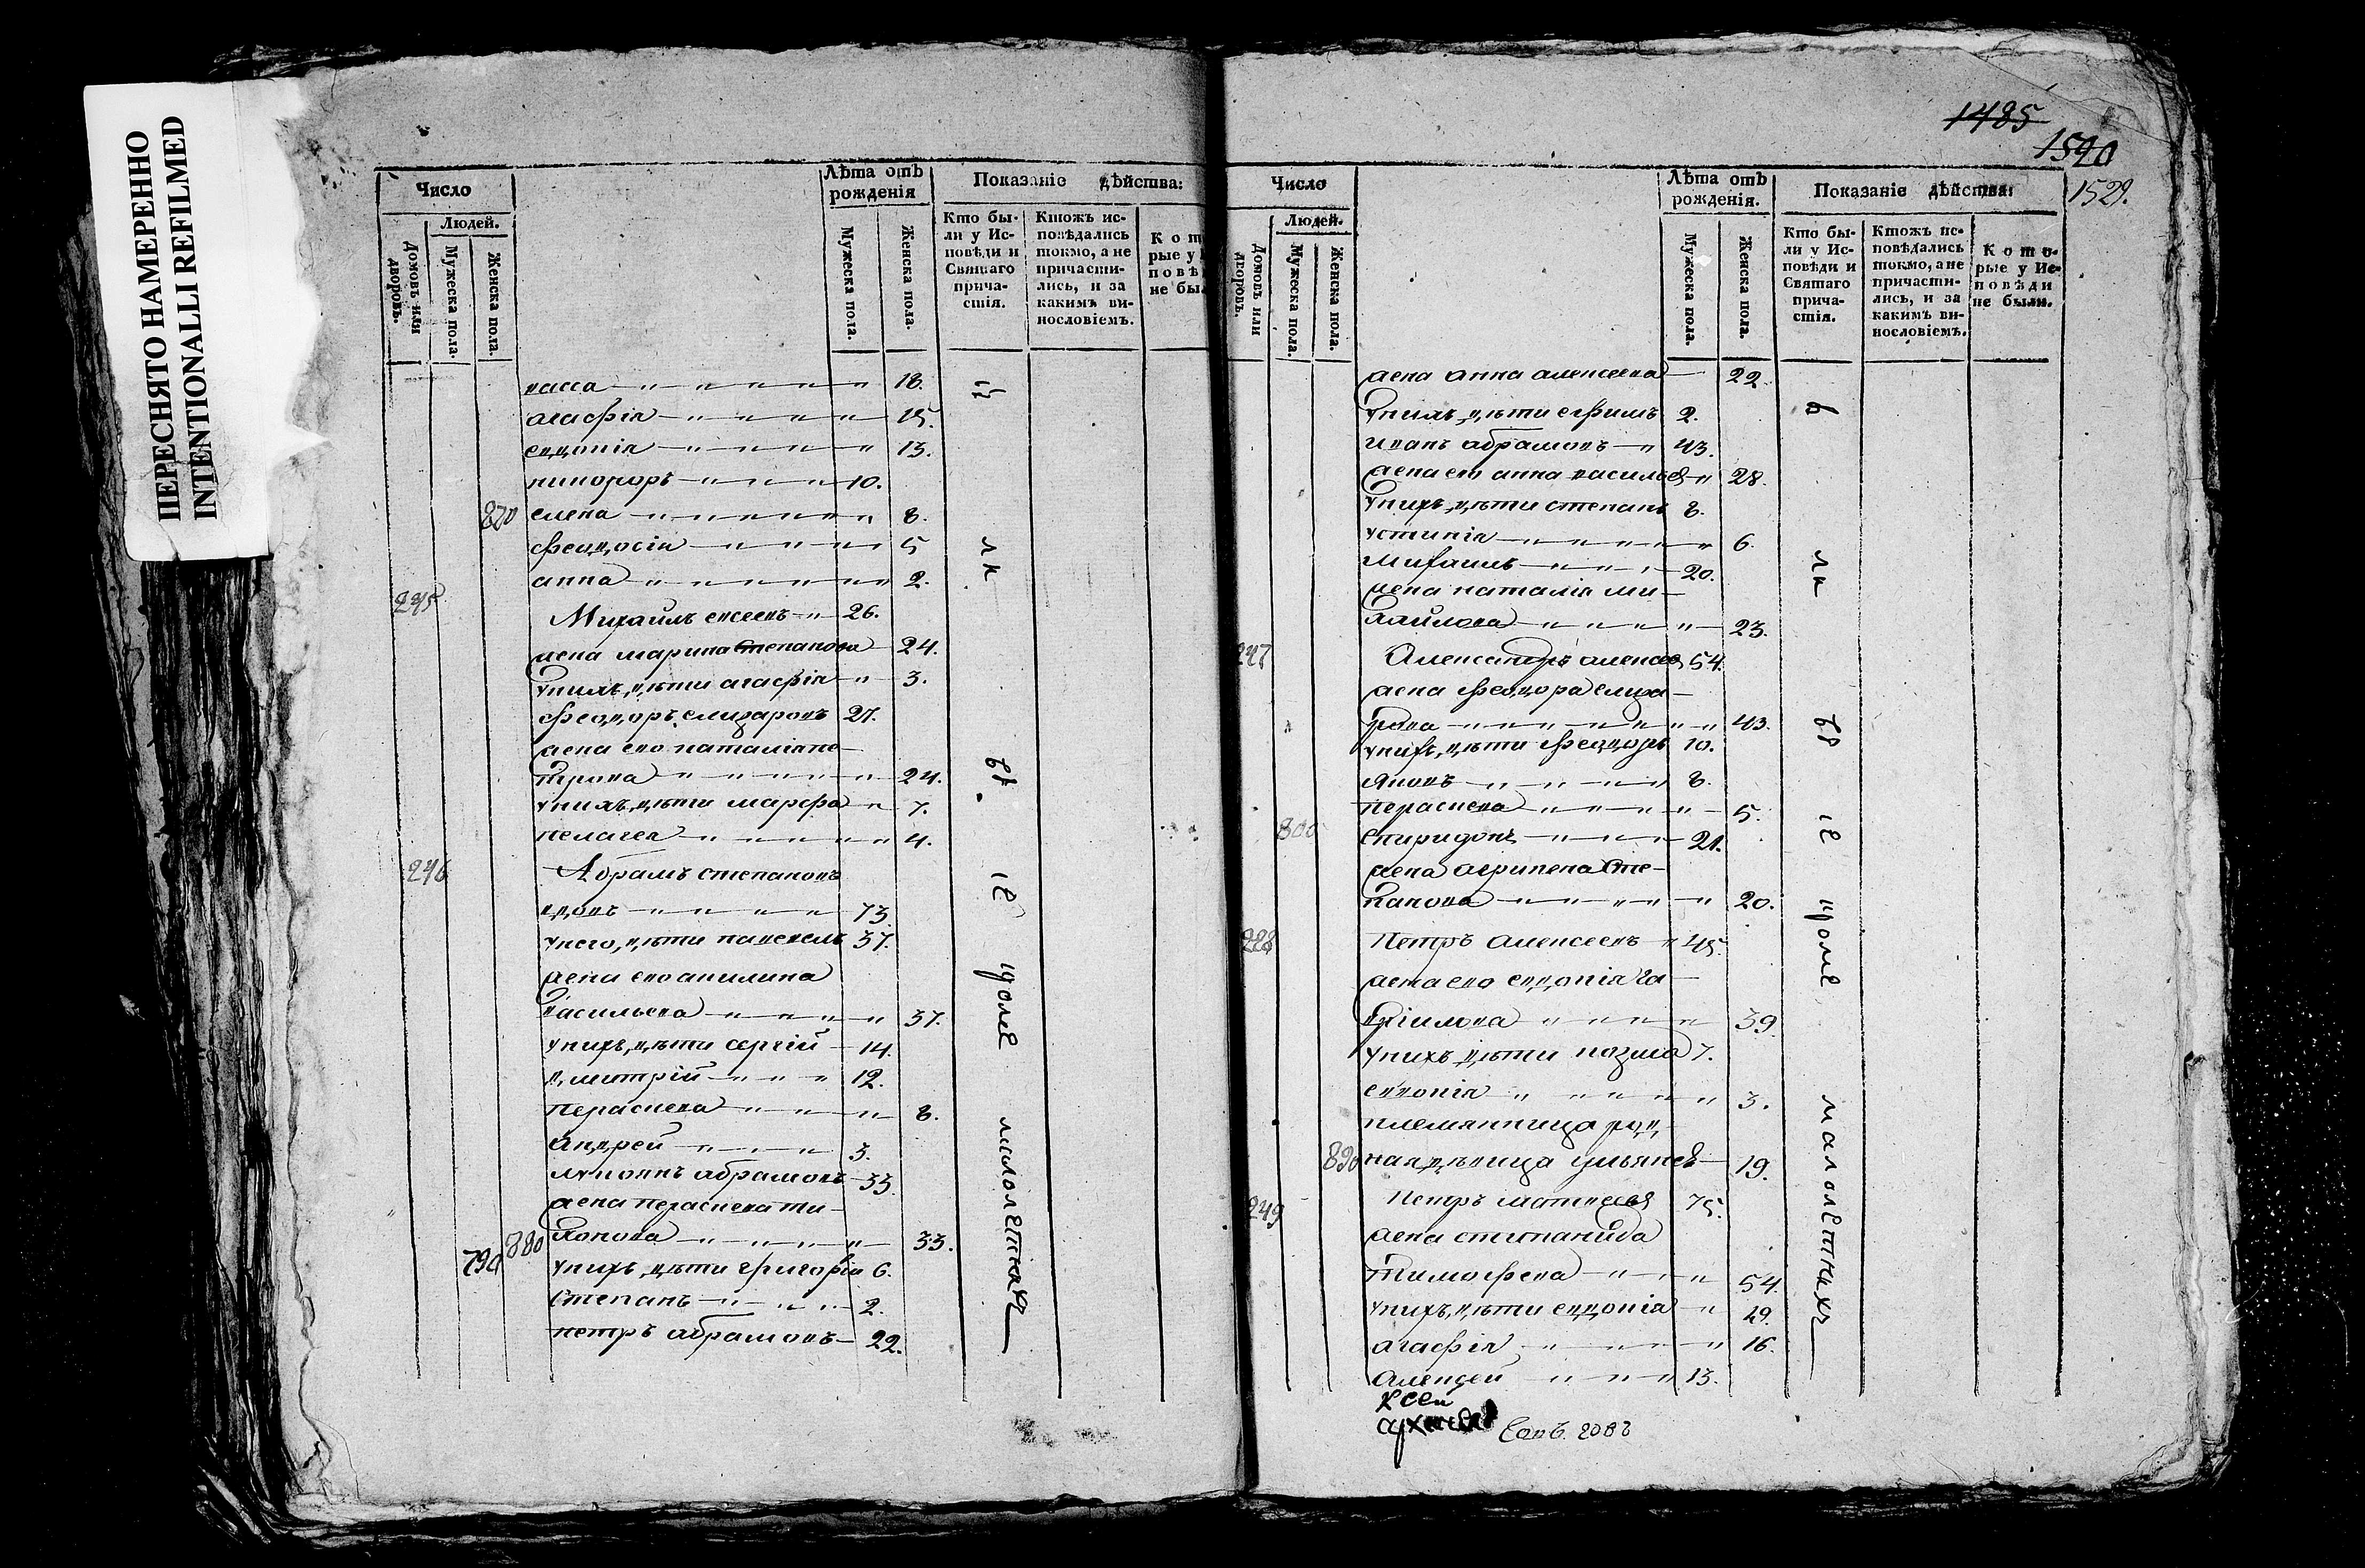 ПЕРЕСНЯТО НАМЕРЕННО
INTENTIONALLI REFILMED
Число
Людей.
Домовъ или дворовъ.
Мужеска пола.
Женска пола.
Лѣта отъ рожденія
Мужеска пола.
Женска пола.
Показаніе дѣйства:
Кто бы-
ли у Ис-
повѣди и
Святаго
прича-
стія.
Ктожъ ис-
повѣдались
токмо, а не
причасти-
лись, и за
какимъ ви-
нословіемъ.
васса 18.
агафія 15.
евдокія 13.
никифоръ 10.
820 елена 8.
феодосія 5
анна 2.
245
Михайлъ евсеевъ 26.
жена марина Степанова 24.
унихъ дѣти агафія 3.
феодоръ елизаровъ 27.
жена его наталія пе-
трова 24.
унихъ дѣти марфа 7.
пелагея 4.
246 Абрамъ степановъ
вдовъ 73.
унего дѣти панкелъ 37.
жена его акилина
васильева 37.
унихъ дѣти сергій 14.
дмитрій 12.
пераскева 8.
андрей 3.
лукіянъ абрамовъ 33.
жена пераскева ти-
790 880 хонова 33.
унихъ дѣти григорій 6.
Степанъ 2.
петръ абрамовъ 22.
кроме
малолетнихъ
1485
1520
1529.
Число
Людей.
Домовъ или дворовъ.
Мужеска пола.
Женска пола.
Лѣта отъ рожденія.
Мужеска пола.
Женска пола.
Показаніе дѣйства:
Кто бы-
ли у Ис-
повѣди и
Святаго
прича-
стія.
Ктожъ ис-
повѣдались
токмо, а не
причасти-
лись, и за
какимъ ви-
нословіемъ.
Кото-
рые у Ис-
повѣди
не были.
жена анна алексеева 22.
унихъ дѣти ефимъ 2.
иванъ абрамовъ 43.
жена ево анна васильев 28.
унихъ дѣти степанъ 8.
устинія 6.
михаилъ 20.
жена наталія ми-
хайлова 23.
247
Александръ алексеев 54.
жена феодора елиза-
рова 43.
унихъ дѣти феодоръ 10.
яковъ 8.
пераскева 5.
800 Спиридонъ 21.
жена агрипена Сте-
панова 20.
228 Петръ алексеевъ 45.
жена ево евдокія га-
вріилова 39.
унихъ дѣти козма 7.
евдокія 3.
племянница род-
890 ная девица ульянея 19.
249 Петръ матвеевъ 75.
жена степанида
тимофеева 54.
унихъ дѣти евдокія 19.
агафія 16.
алексей 13.
кроме
малолетнихъ